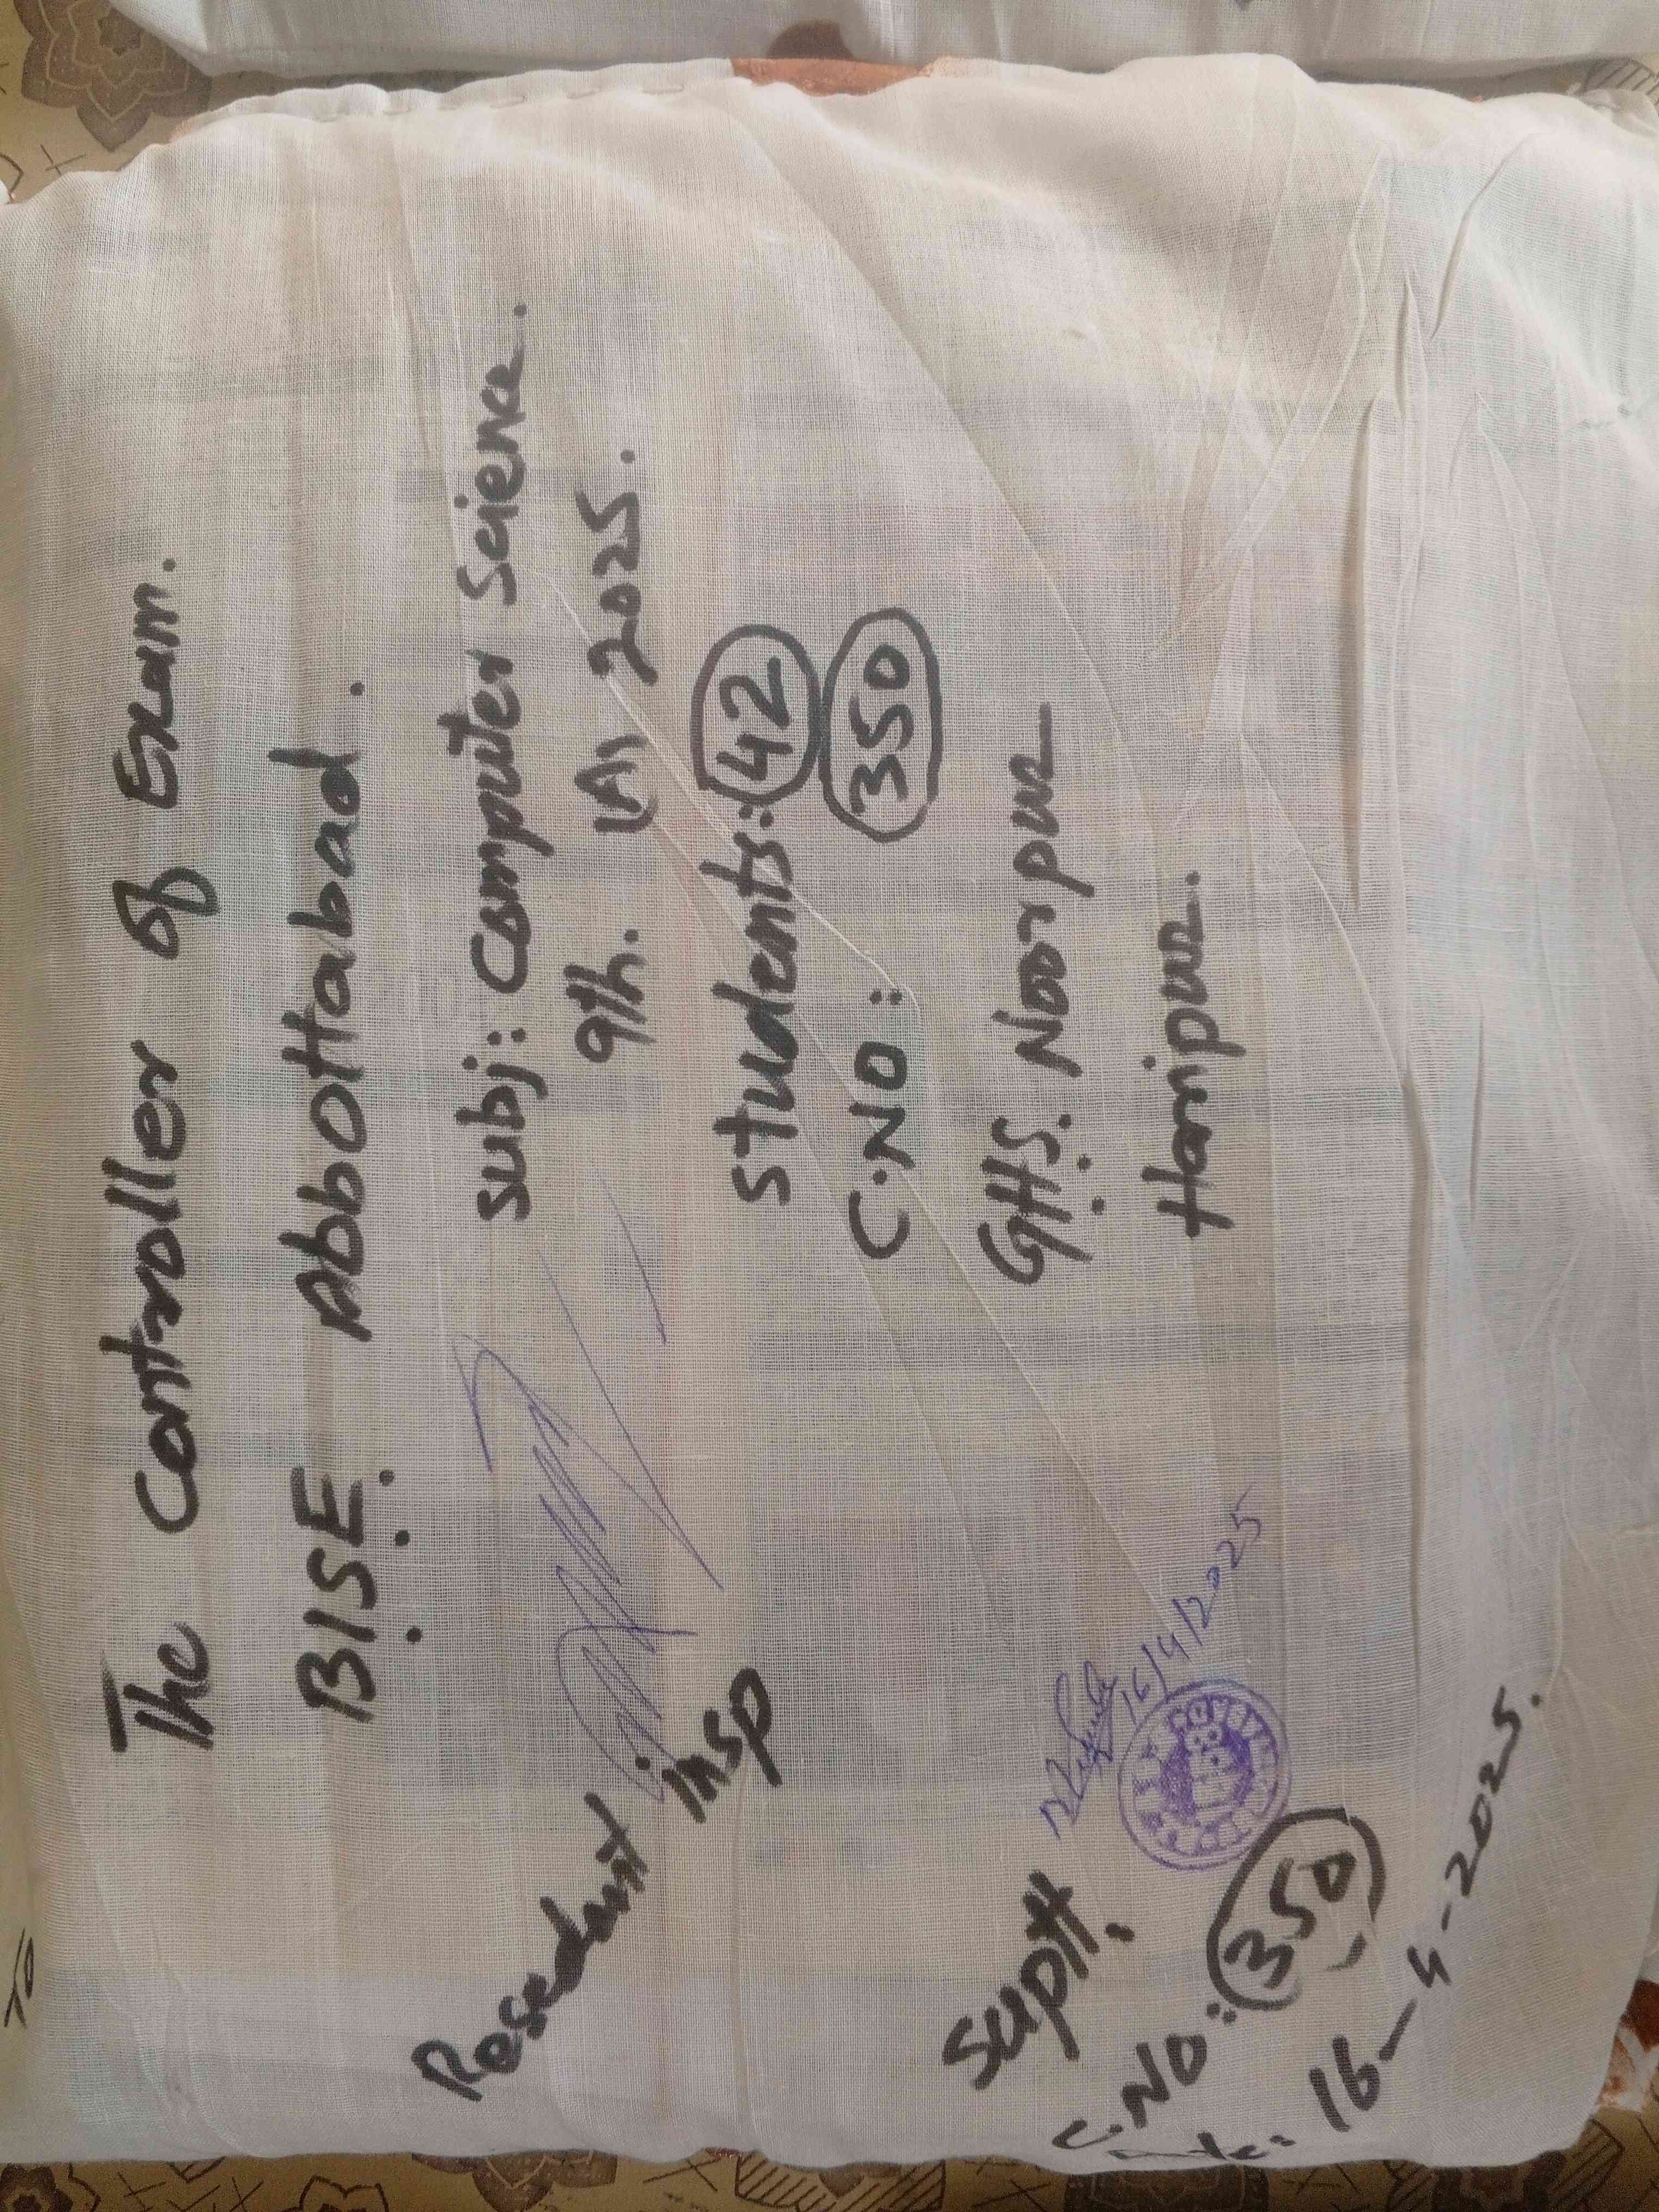 To
The Controller of Exam.
BISE. Abbottabad.
Subj: Computer Science.
9th. (A) 2025.
Students: 42
C.NO: 350
G.H.S. Noorpur
Haripur.
Resedent insp
Suptt.
16/4/2025
C.NO: 350
16-4-2025.